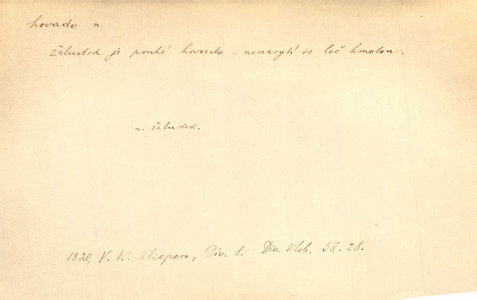 hovado n.
Žaludek je pouhé hovado - nenasytí se leč hmotou.
v. žaludek.
1820 V. K. Klicpera, Div. 1. Div. Klob. 58. 28.